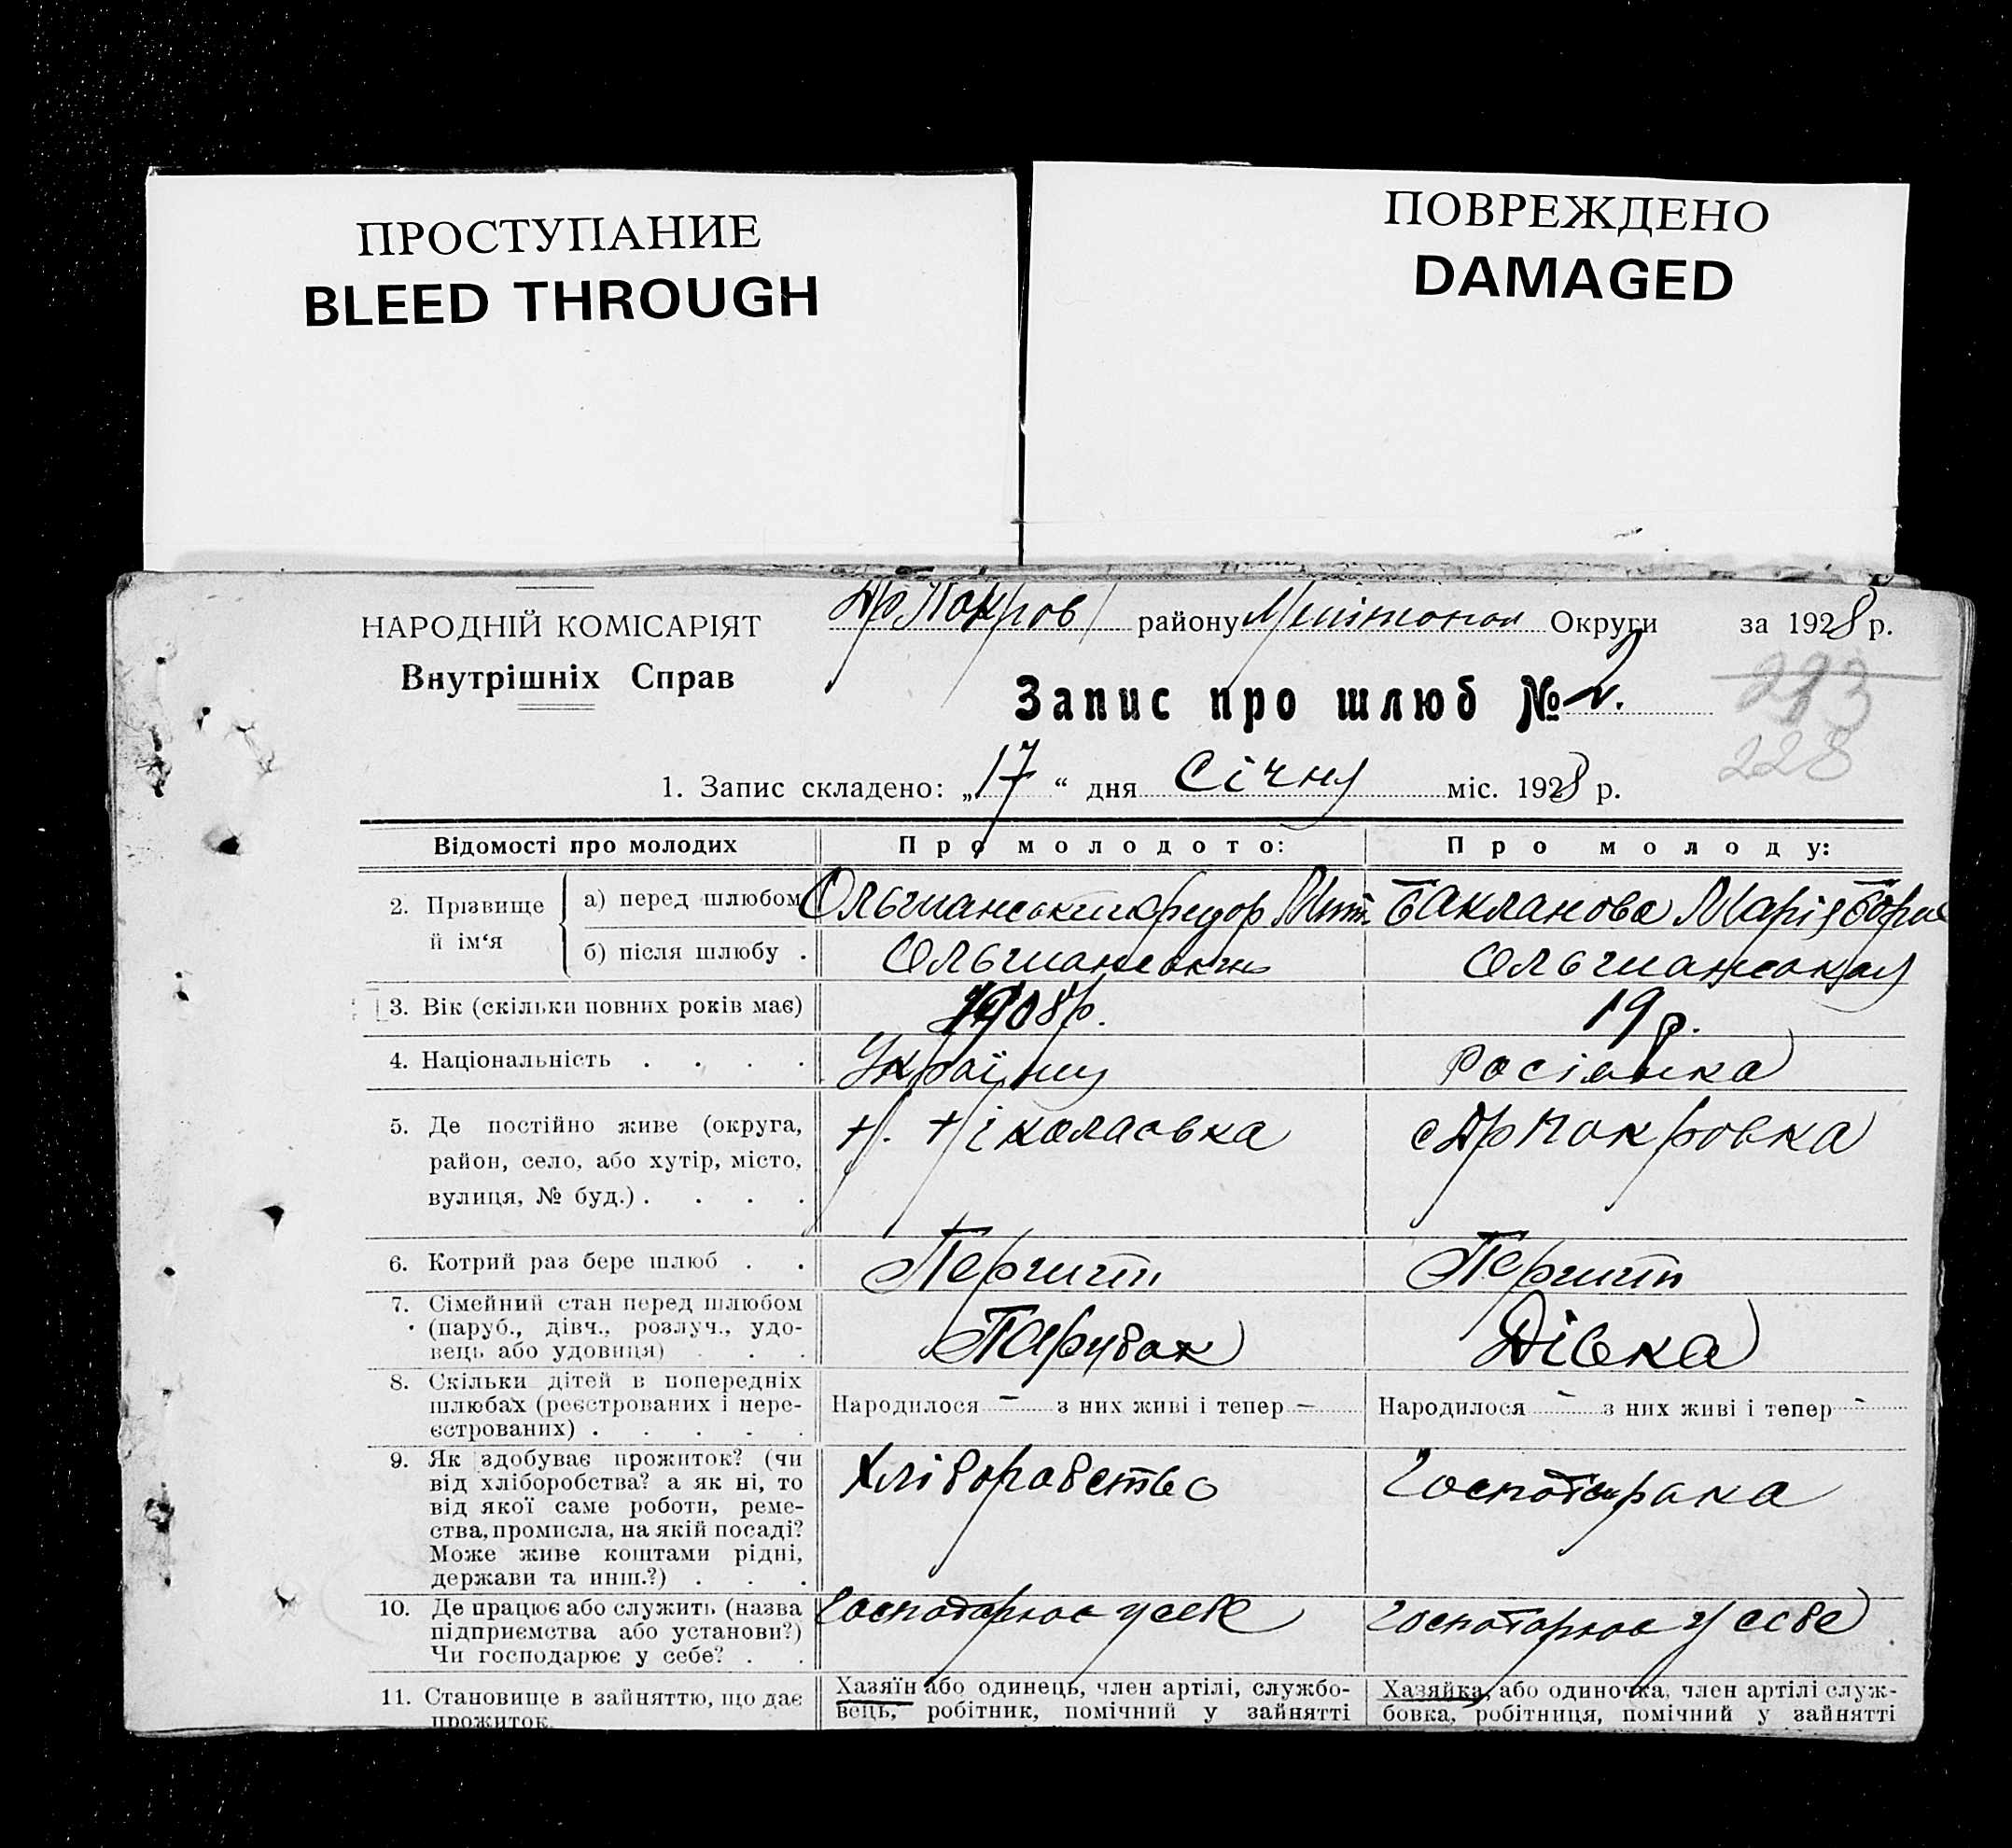 ПРОСТУПАНИЕ
BLEED THROUGH
ПОВРЕЖДЕНО
DAMAGED
НАРОДНІЙ КОМІСАРІЯТ
Внутрішніх Справ
Др Покров району Мелітопол Округи за 1928 р.
Запис про шлюб № 2.
213
228
1. Запис складено: „17“ дня Січня міс. 1928 р.
Відомості про молодих
Про молодого:
Про молоду:
2. Прізвище й ім‘я
а) перед шлюбом
Ольшанський Федор Мит.
Бакланова Марія Борис
б) після шлюбу .
Ольшанський
Ольшанская
3. Вік (скільки повних років має)
1908р.
19 р.
4. Національність . . . .
Українц
Росіянка
5. Де постійно живе (округа,
район, село, або хутір, місто,
вулиця, № буд.) . . . .
Н. Ніколаовка
с Др Покровка
6. Котрий раз бере шлюб . .
Перший
Перший
7. Сімейний стан перед шлюбом
(паруб., дівч., розлуч., удо-
вець або удовиця) . . .
Парубок
Дівка
8. Скільки дітей в попередніх
шлюбах (реєстрованих і нере-
єстрованих) . . . . .
Народилося – з них живі і тепер –
Народилося – з них живі і тепер –
9. Як здобуває прожиток? (чи
від хліборобства? а як ні, то
від якої саме роботи, реме-
ства, промисла, на якій посаді?
Може живе коштами рідні,
держави та инш.?) . . .
Хліборобство
10. Де працює або служить (назва
підприємства або установи?)
Чи господарює у себе? . .
Господарює у себе
Господарює у себе
11. Становище в зайняттю, що дає
прожиток.
Хазяїн або одинець, член артілі, службо-
вець, робітник, помічний у зайнятті
Хазяйка, або одиночка, член артілі служ-
бовка, робітниця, помічний у зайнятті